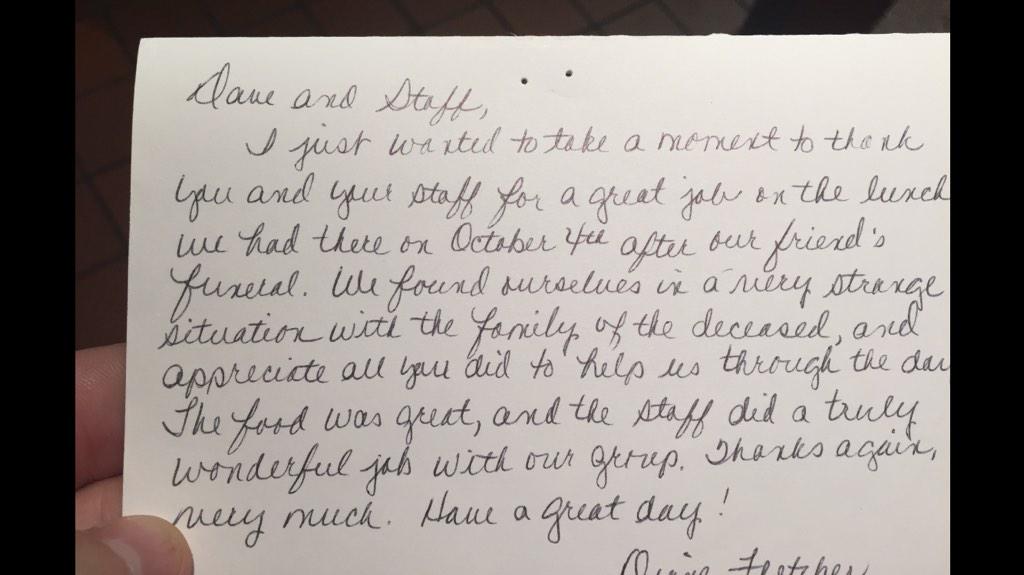 Dave and Staff,
I just wanted to take a moment to thank
you and your staff for a great job on the lunch
we had there on October 4th after our friend's
funeral. We found ourselves in a very strange
situation with the family of the deceased, and
appreciate all you did to help us through the day
The food was great, and the staff did a truly
wonderful job with our group. Thanks again,
very much. Have a great day!
Fletcher